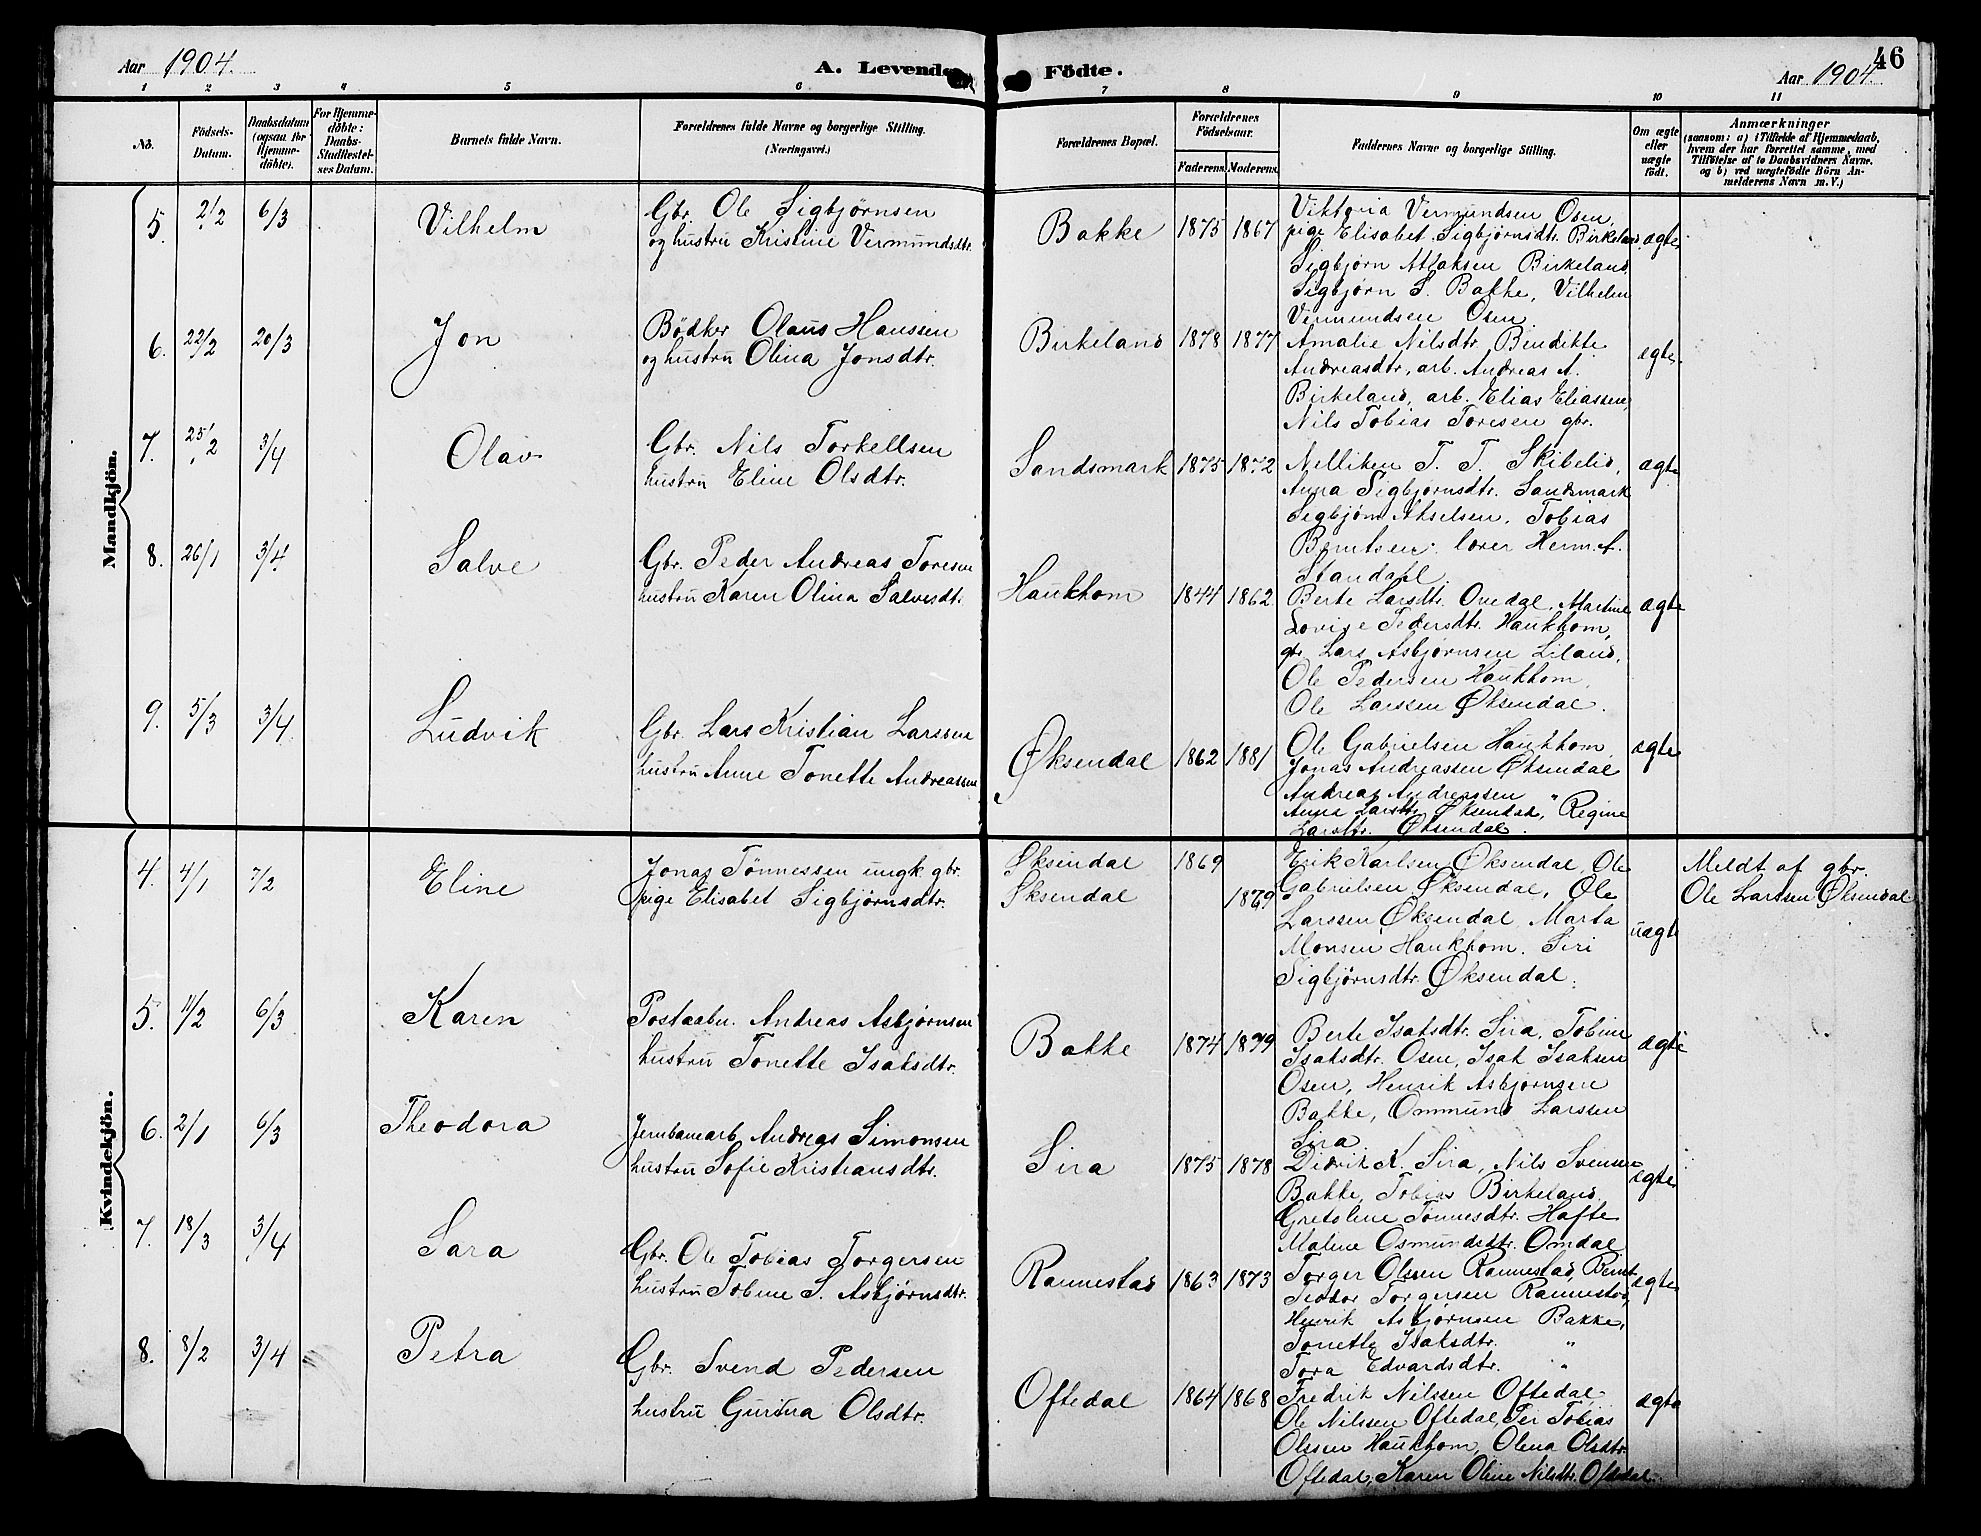 Aar 1904.
A. Levende Födte.
Aar 1904.
46
1 2 3 4 5 6 7 8 9 10 11
No.
Födsels-Datum.
Daabsdatum (ogsaa for Hjemme-döbte).
For Hjemme-döbte: Daabs-Stadfæstel-ses Datum.
Barnets fulde Navn.
Forældrenes fulde Navne og borgerlige Stilling.
(Næringsvei.)
Forældrenes Bopæl.
Forældrenes Födselsaar.
Faderens. Moderens.
Faddernes Navne og borgerlige Stilling.
Om ægte eller uægte födt.
Anmærkninger
(saasom: a) i Tilfælde af Hjemmedaab, hvem der har forrettet samme, med Tilföielse af to Daabsvidners Navne, og b) ved uægtefödte Börn An-melderens Navn m. V.)
Mandkjön.
5. 2/2 6/3 Vilhelm
Gbr. Ole Sigbjørnsen
og hustru Kristine Vermundsdtr.
Bakke 1875 1867
Viktoria Vermundsen Osen,
pige Elisabet Sigbjørnsdtr. Birkeland, ægte
Sigbjørn Atlaksen Birkeland,
Sigbjørn S. Bakke, Vilhelm
Vermundsen Osen
6. 22/2 20/3 Jon
Bødker Olaus Hanssen
og hustru Olina Jonsdtr.
Birkeland 1878 1877
Amalie Nilsdtr, Bendikte
Andreasdtr, arb. Andreas A. ægte
Birkeland, arb. Elias Eliassen,
Nils Tobias Toresen gbr.
7. 25/2 3/4 Olav
Gbr. Nils Torkellsen
hustru Eline Olsdtr.
Sandsmark 1875 1872
Nelliken T. T. Skibelid, ægte
Anna Sigbjørnsdtr. Sandsmark
Sigbjørn Akselsen, Tobias
Berntsen, lærer Herm. A.
Standahl.
8. 26/1 3/4 Salve
Gbr. Peder Andreas Toresen
hustru Karen Olina Salvesdt.
Haukhom 1844 1862
Berte Larsdtr. Ovedal, Martine ægte
Lovise Pedersdtr. Haukhom,
gbr. Lars Asbjørnsen Liland,
Ole Pedersen Haukhom,
Ole Larssen Øksendal.
9. 5/3 3/4 Ludvik
Gbr. Lars Kristian Larssen
hustru Anne Tonette Andreassen
Øksendal 1862 1881
Ole Gabrielsen Haukhom, ægte
Jonas Andreassen Øksendal
Andreas Andreassen "
Anna Larsdtr. Øksendal, Regine
Larsdtr. Øksendal.
Kvindekjön.
4. 4/1 7/2 Eline
Jonas Tønnessen ungk. gbr.
pige Elisabet Sigbjørnsdtr.
Øksendal 1869
Øksendal 1879
Erik Karlsen Øksendal, Ole
Gabrielsen Øksendal, Ole
Larssen Øksendal, Marta uægte
Monsen Haukhom. Siri
Sigbjørnsdtr. Øksendal.
Meldt af gbr.
Ole Larssen Øksendal
5. 11/2 6/3 Karen
Postaabn. Andreas Asbjørnsen
hustru Tonette Isaksdtr.
Bakke 1874 1879
Berte Isaksdtr. Sira, Tobine ægte
Isaksdtr. Osen, Isak Isaksen
Osen, Henrik Asbjørnsen
Bakke, Ommund Larssen
Sira
6. 2/1 6/3 Theodora
Jernbanearb. Andreas Simonsen
hustru Sofie Kristiansdtr.
Sira 1875 1878
Didrik K. Sira, Nils Svensen ægte
Bakke, Tobias Birkeland,
Gretolene Tønnesdtr. Hafte
Malene Osmundsdtr. Omdal
7. 18/3 3/4 Sara
Gbr. Ole Tobias Torgersen
hustru Tobine S. Asbjørnsdtr.
Rannestad 1863 1873
Torger Olsen Rannestad, Bernt ægte
Teodor Torgersen Rannestad,
Henrik Asbjørnsen Bakke,
Tonette Isaksdtr. "
Tora Edvardsdtr. "
8. 8/2 3/4 Petra
Gbr. Svend Pedersen
hustru Gurina Olsdtr.
Oftedal 1864 1868
Fredrik Nilssen Oftedal, ægte
Ole Nilssen Oftedal, Per Tobias
Olssen Haukhom, Olena Olsdtr.
Oftedal, Karen Oline Nilsdtr. Oftedal.